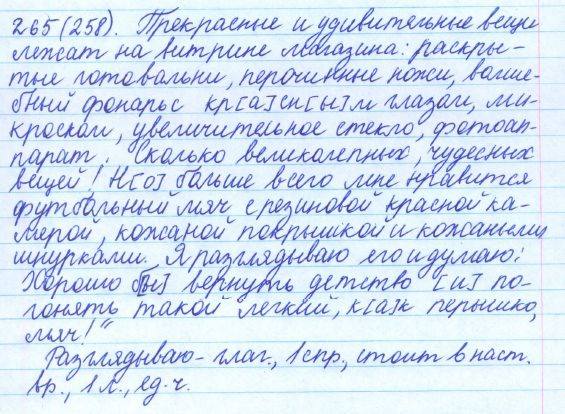 265 (258). Прекрасные и удивительные вещи
лежат на витрине магазина: раскры-
тые готовальни, перочинные ножи, волше-
бный фонарь с кр[а]сн[ы]м глазом, ми-
кроскоп, увеличительное стекло, фотоап-
парат. Сколько великолепных, чудесных
вещей! Н[о] больше всего мне нравится
футбольный мяч с резиновой красной ка-
мерой, кожаной покрышкой и кожаными
шнурками. Я разглядываю его и думаю:
Хорошо [бы] вернуть детство [и] по-
гонять такой легкий, к[а]к перышко,
мяч!"
Разглядываю- глаг., 1 спр., стоит в наст.
вр., 1 л., ед. ч.